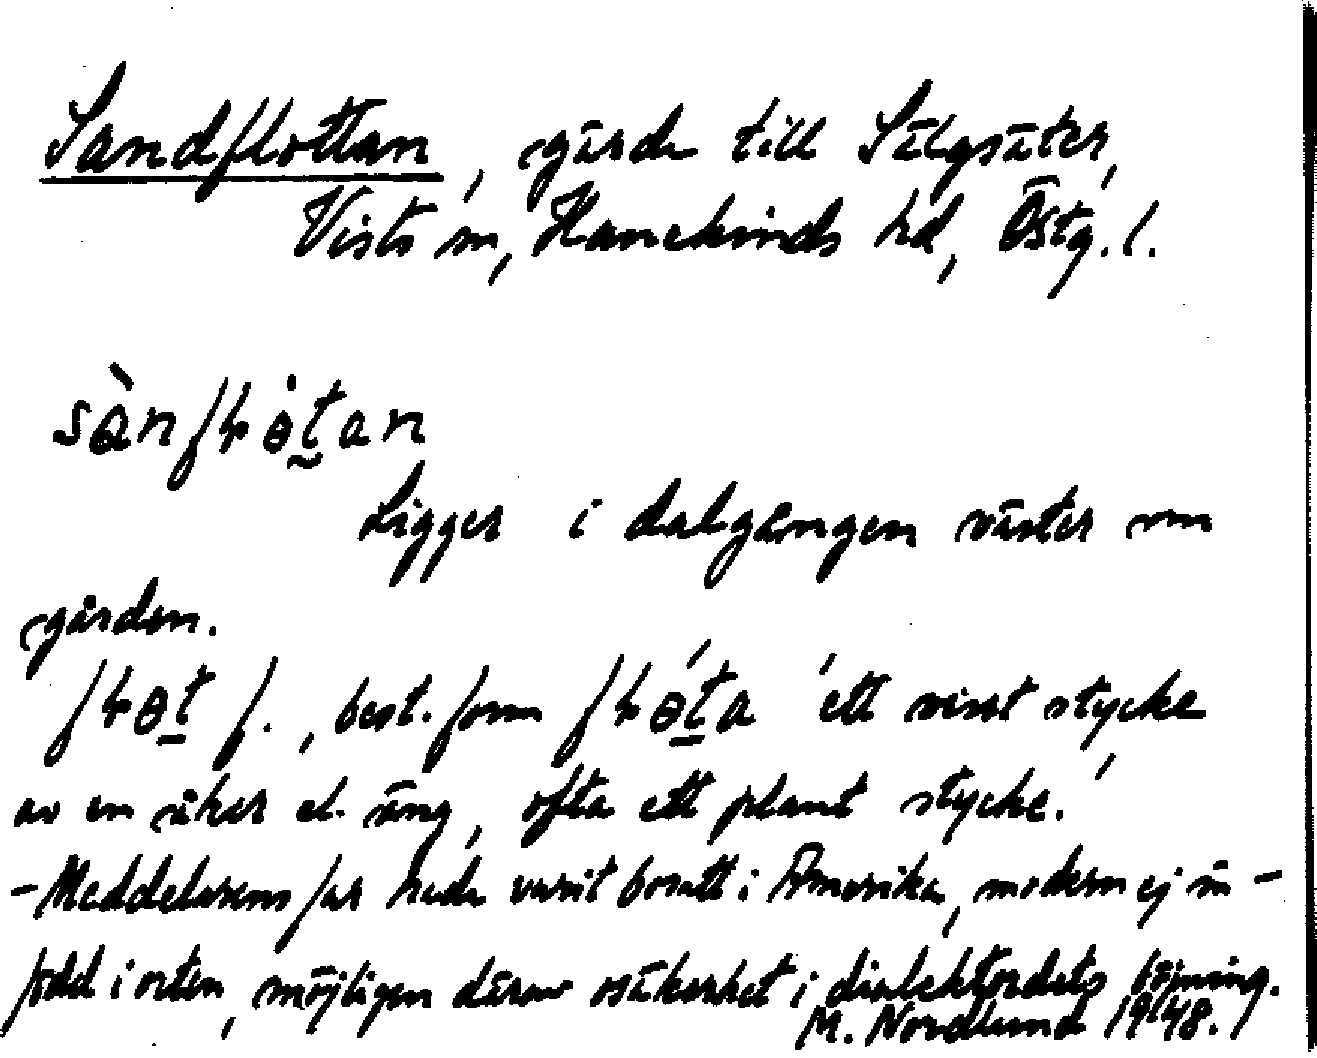 Sandflottan, gärde till Sälgsäter,
Vists sn, Hanekinds hd, Östg. l.
sànfɫɵ̇tan
Ligger i dalgången väster om
gården.
fɫɵt f., best. form fɫɵ́ta 'ett visst stycke
av en åker el. äng, ofta ett plant stycke.'
- Meddelarens far hade varit bosatt i Amerika, modern ej in-
född i orten, möjligen därav osäkerhet i dialektordets böjning.
M. Nordlund 1948.